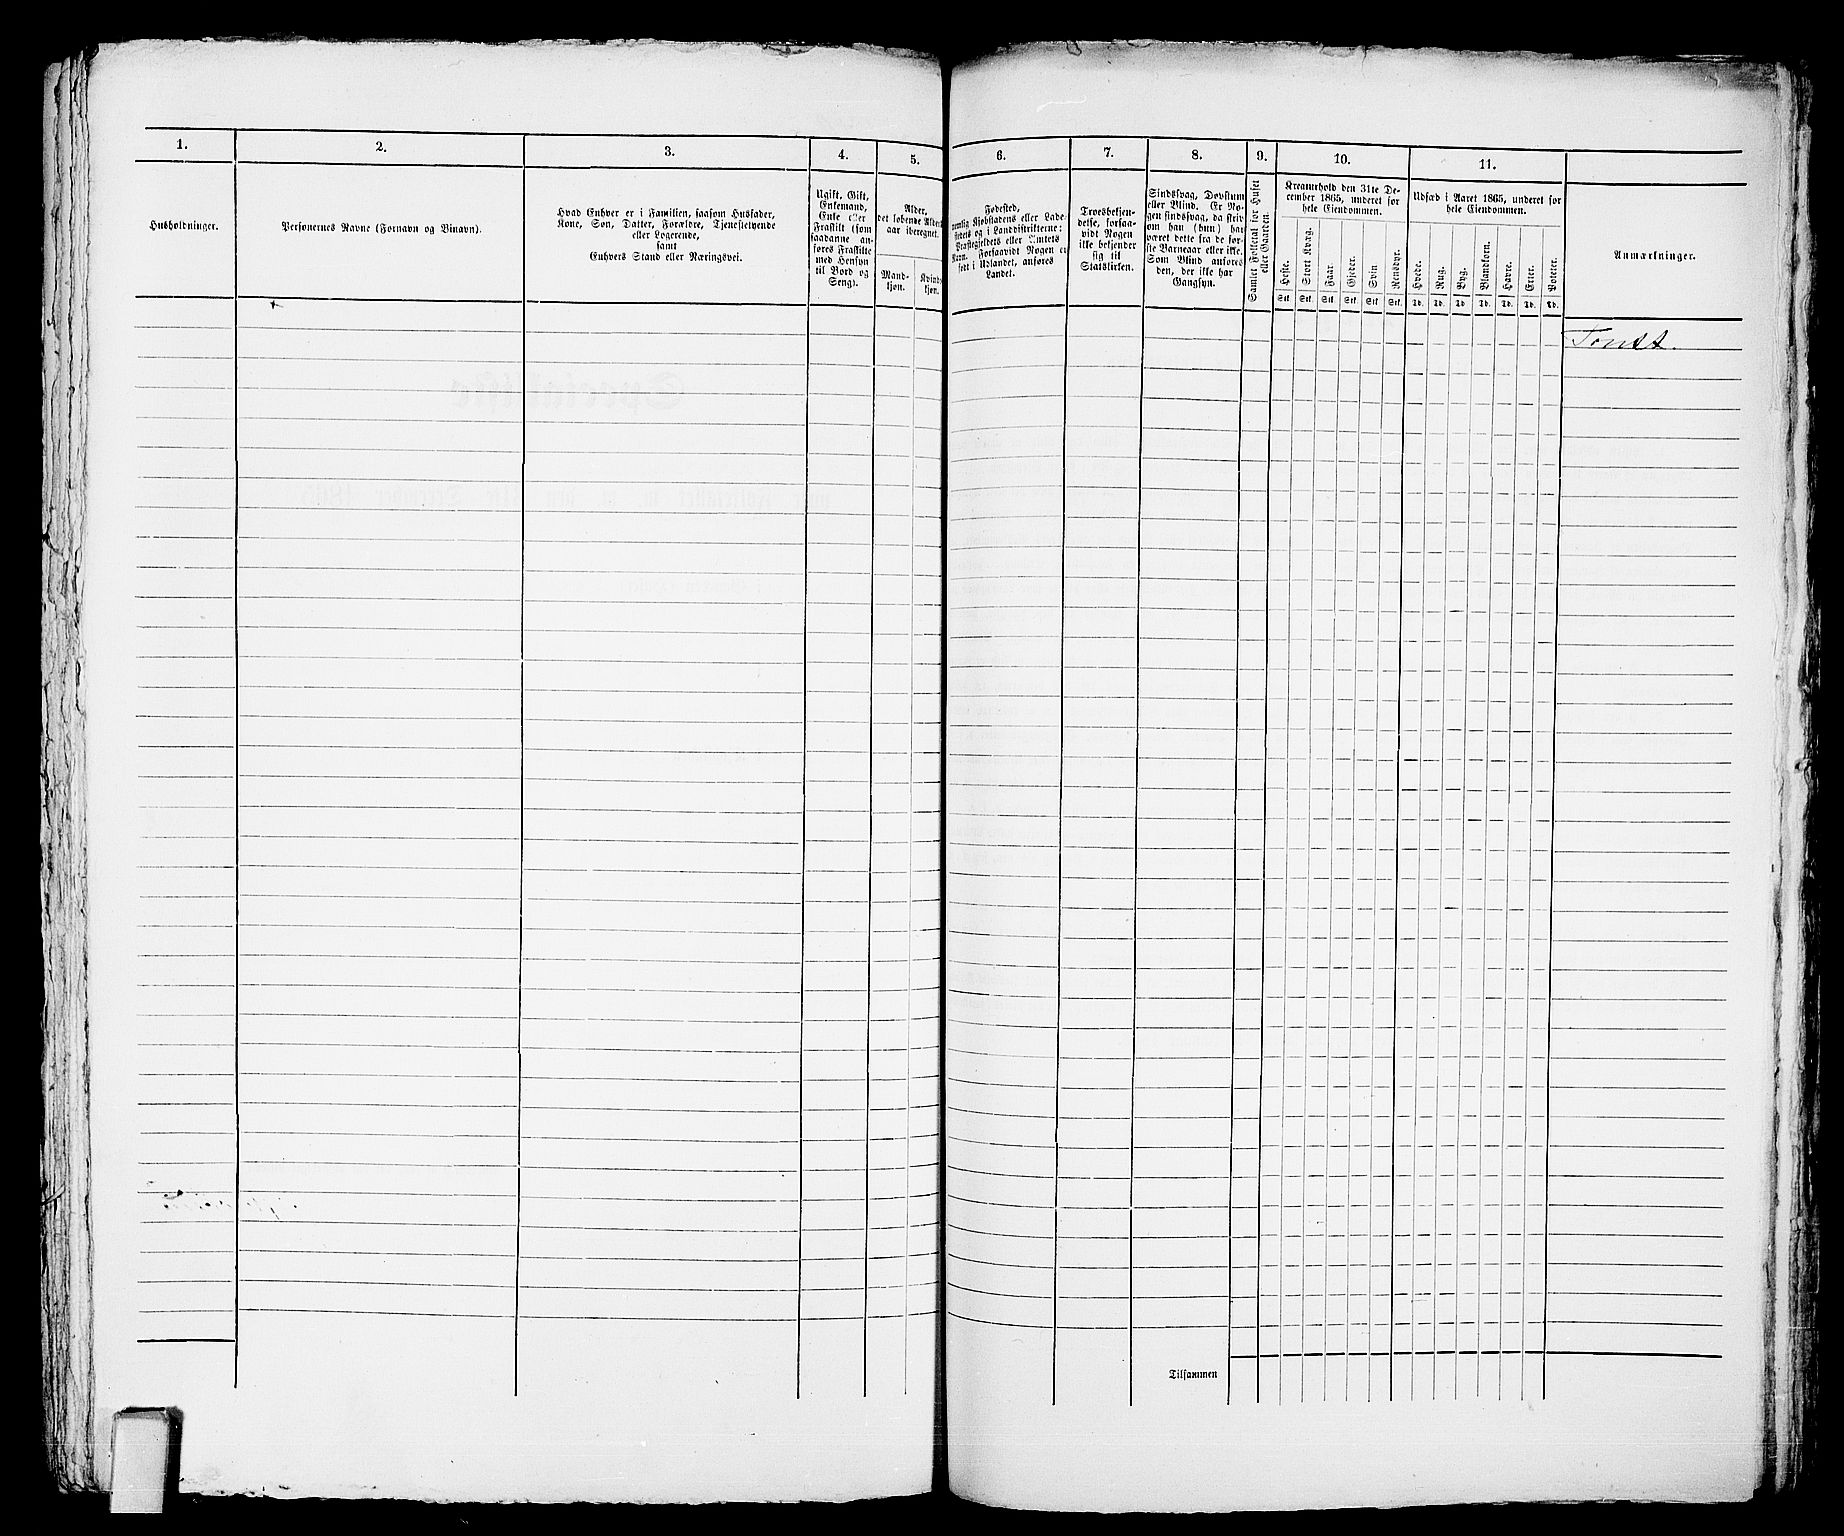 1.
2.
3.
4.
5.
Husholdninger.
Personernes Navne (Fornavn og Binavn).
Hvad Enhver er i Familien, saasom Husfader,
Kone, Søn, Datter, Forældre, Tjenestetyende
eller Logerende,
samt
Enhvers Stand eller Næringsvei.
Ugift, Gift,
Enkemand,
Enke eller
Fraskilt (som
saadanne an-
føres Fraskilte
med Hensyn
til Bord og
Seng).
Alder,
det løbende Alders-
aar iberegnet.
Mand-
kjøn.
Kvind-
kjøn.
6.
7.
8.
9.
10.
11.
Fødested,
nemlig Kjøbstadens eller Lade-
stedets og i Landdistrikterne:
Præstegjeldets eller Amtets
Navn. Forsaavidt Nogen er
født i Udlandet, anføres
Landet.
Troesbekjen-
delse, forsaa-
vidt Nogen
ikke bekjender
sig til
Statskirken.
Sindssvag, Døvstum
eller Blind. Er No-
gen sindssvag, da skriv
om han (hun) har
været dette fra de før-
ste Barneaar eller ikke.
Som Blind anføres
den, der ikke har
Gangsyn.
Samlet Folketal for Huset
eller Gaarden.
Kreaturhold den 31te De-
cember 1865, underet for
hele Eiendommen.
Heste.
Stort Kvæg.
Faar.
Gjeder.
Svin
Rensdyr.
Stk. Stk. Stk. Stk. Stk. Stk.
Udsæd i Aaret 1865, underet for
hele Eiendommen.
Hvede.
Rug.
Byg.
Blandkorn.
Havre.
Erter.
Poteter.
Td. Td. Td. Td. Td. Td. Td.
Anmærkninger.
Tomt.
Tilsammen